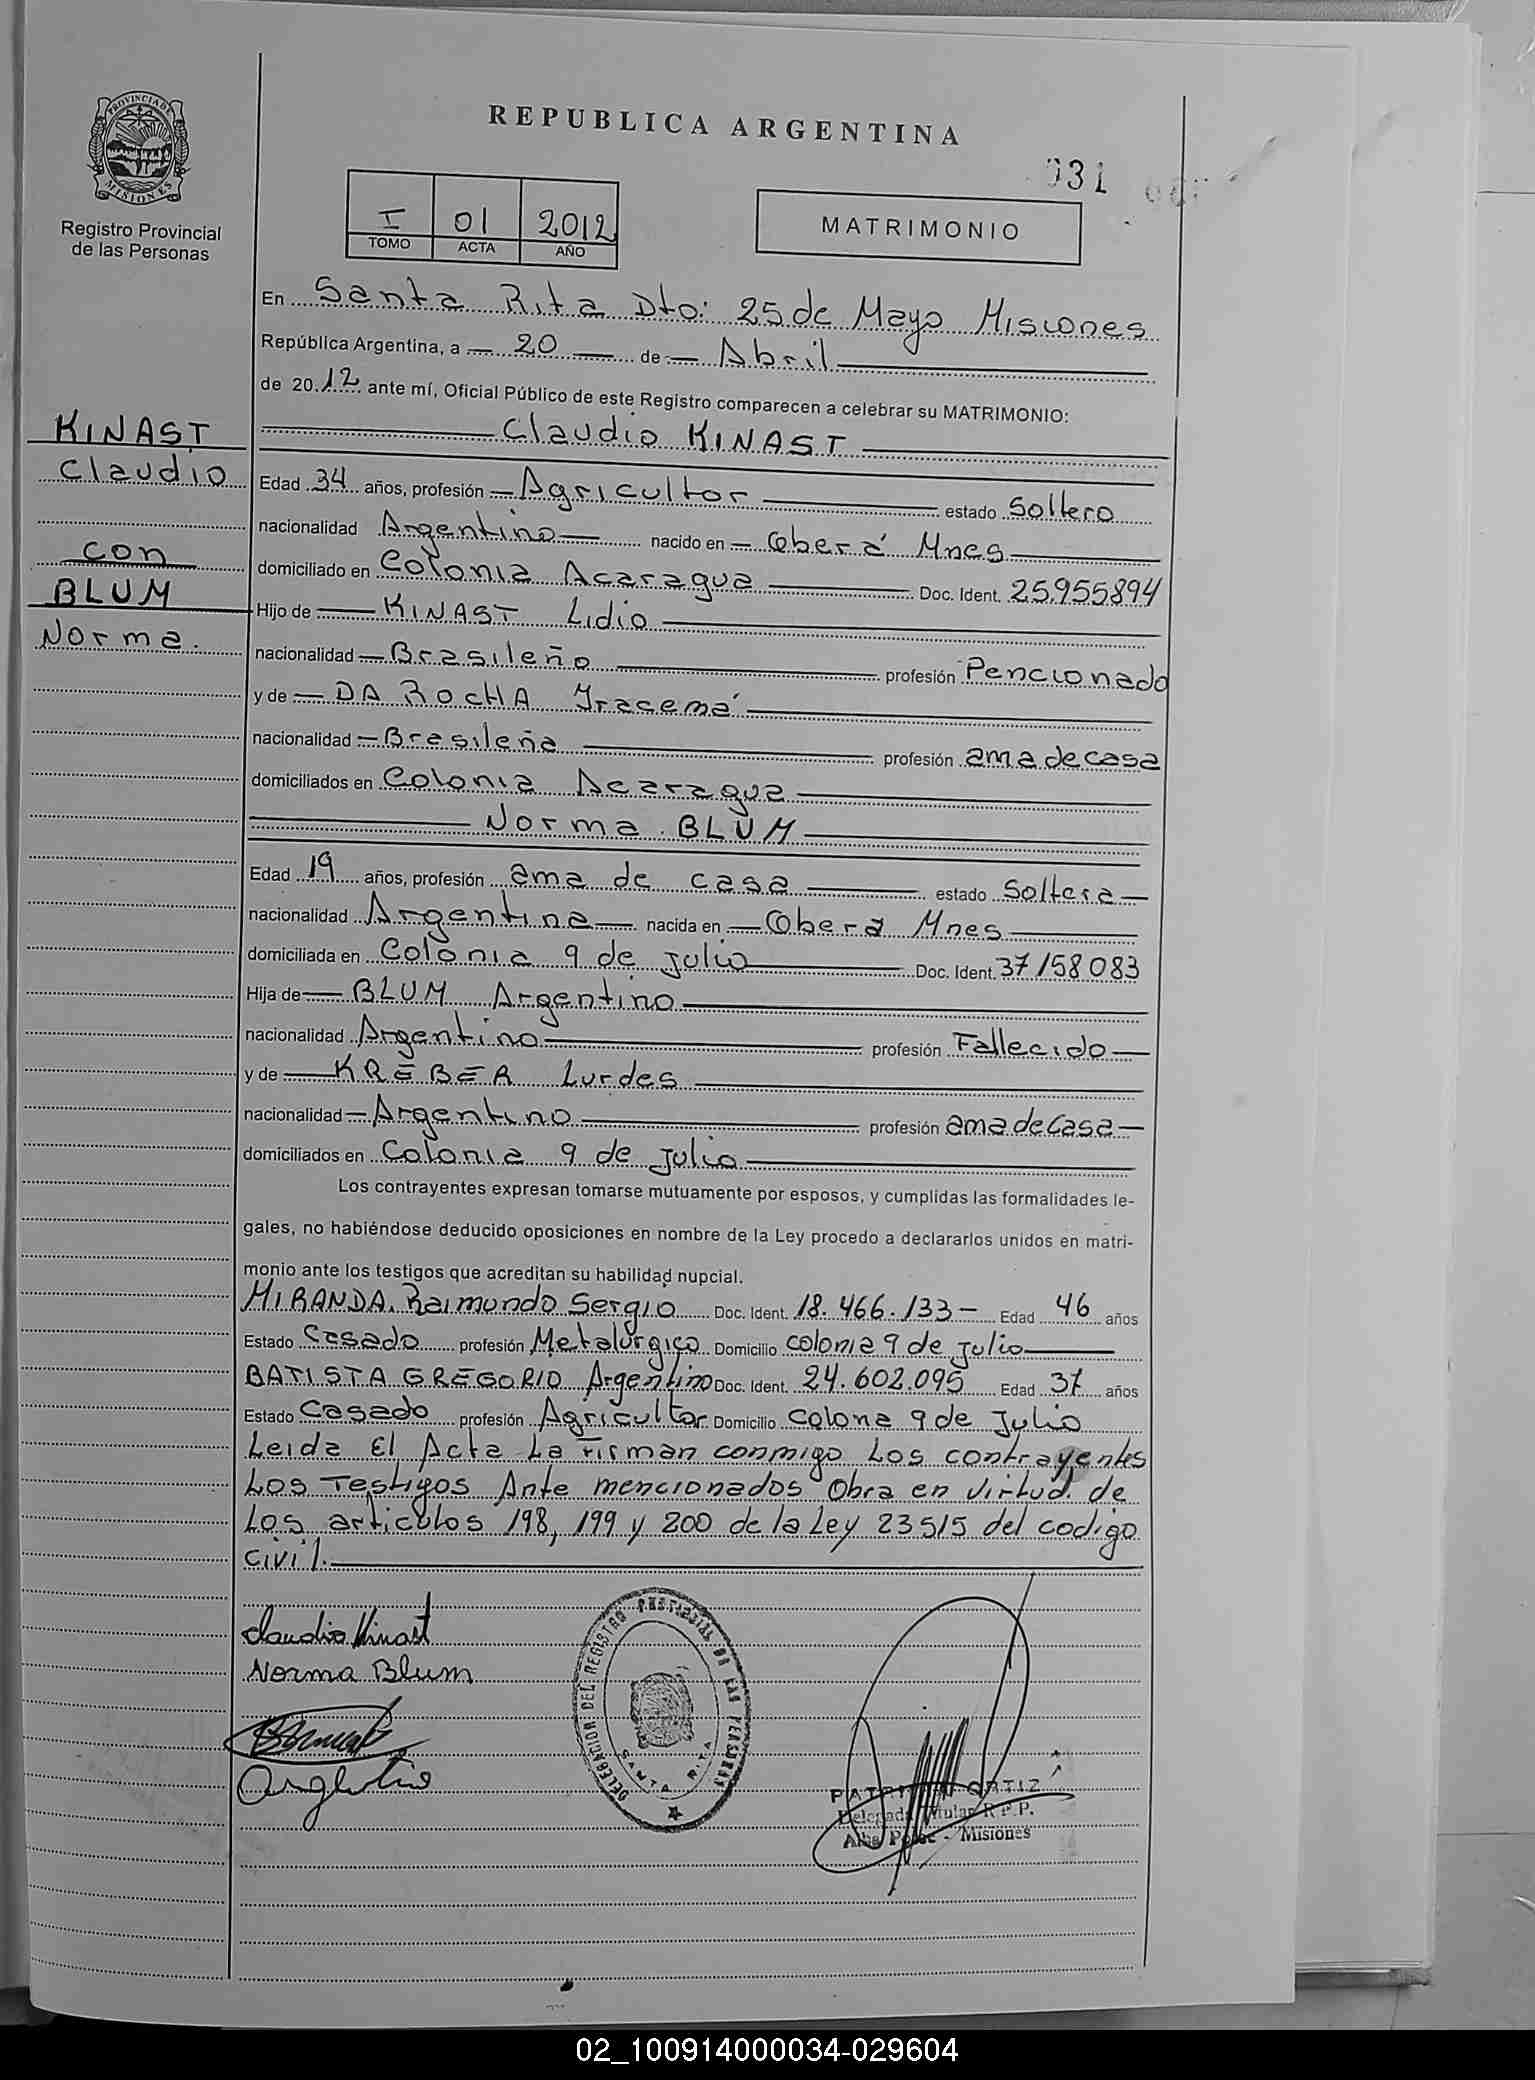 REPUBLICA ARGENTINA
PROVINCIA DE MISIONES
Registro Provincial
de las Personas
031
I 01 2012
TOMO ACTA AÑO
MATRIMONIO
En Santa Rita Dto: 25 de Mayo Misiones
República Argentina, a 20 de Abril
de 2012 ante mí, Oficial Público de este Registro comparecen a celebrar su MATRIMONIO:
KINAST
Claudio
con
BLUM
Norma.
Claudio KINAST
Edad 34 años, profesión Agricultor estado Soltero
nacionalidad Argentino nacido en Oberá Mnes
domiciliado en Colonia Acaragua Doc. Ident. 25.955894
Hijo de KINAST Lidio
nacionalidad Brasileño profesión Pencionado
y de DA ROCHA Iracemá
nacionalidad Brasileña profesión ama de casa
domiciliados en Colonia Acaragua
Norma BLUM
Edad 19 años, profesión ama de casa estado Soltera
nacionalidad Argentina nacida en Oberá Mnes
domiciliada en Colonia 9 de julio Doc. Ident. 37158083
Hija de BLUM Argentino
nacionalidad Argentino profesión Fallecido
y de KREBER Lurdes
nacionalidad Argentino profesión ama de casa
domiciliados en Colonia 9 de julio
Los contrayentes expresan tomarse mutuamente por esposos, y cumplidas las formalidades le-
gales, no habiéndose deducido oposiciones en nombre de la Ley procedo a declararlos unidos en matri-
monio ante los testigos que acreditan su habilidad nupcial.
MIRANDA. Raimundo Sergio Doc. Ident. 18.466.133 Edad 46 años
Estado Casado profesión Metalúrgico Domicilio colonia 9 de julio
BATISTA GREGORIO Argentino Doc. Ident. 24.602.095 Edad 37 años
Estado Casado profesión Agricultor Domicilio Colona 9 de Julio
Leida El Acta La Firman conmigo Los contrayentes
Los Testigos Ante mencionados Obra en virtud de
Los articulos 198, 199 y 200 de la Ley 23515 del codigo
civil.
Claudio Kinast
Norma Blum
DELEGACION DEL REGISTRO PROVINCIAL DE LAS PERSONAS
SANTA RITA
ORTIZ
Delegada Titular R.P.P.
Alba Posse - Misiones
02_100914000034-029604